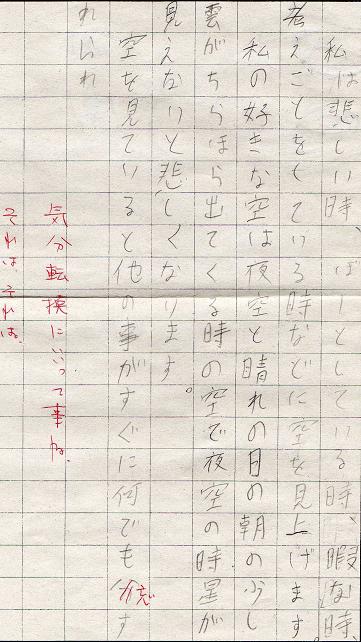 私は悲しい時、ぼーとしている時、暇な時
考えごとをしている時などに空を見上げます。
私の好きな空は夜空と晴れの日の朝の少し
雲がちらほら出てくる時の空で夜空の時、星が
見えないと悲しくなります。
空を見ていると他の事がすぐに何でも す
れられ
気分転換にいって事ね。
それは、それは。